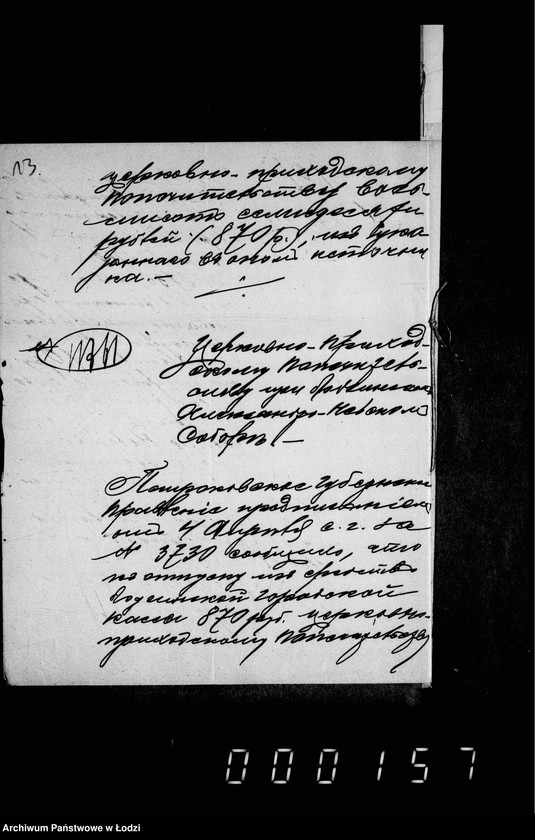 13.
церковно-приходскому
попечительству восемь-
сотъ семьдесяти
рублей (870 р.), изъ ука
заннаго въ оной источни
ка.—
Церковно-Приход-
скому Попечитель-
ству при Лодзинскомъ
Александро-Невскомъ
Соборѣ.—
Петроковское Губернское
Правленіе предписаніемъ
отъ 4 Апрѣля с. г. за
№ 3730 сообщило, что
по отпуску изъ средствъ
Лодзинской городской
кассы 870 руб. церковно-
приходскому Попечительству
000157
Archiwum Państwowe w Łodzi